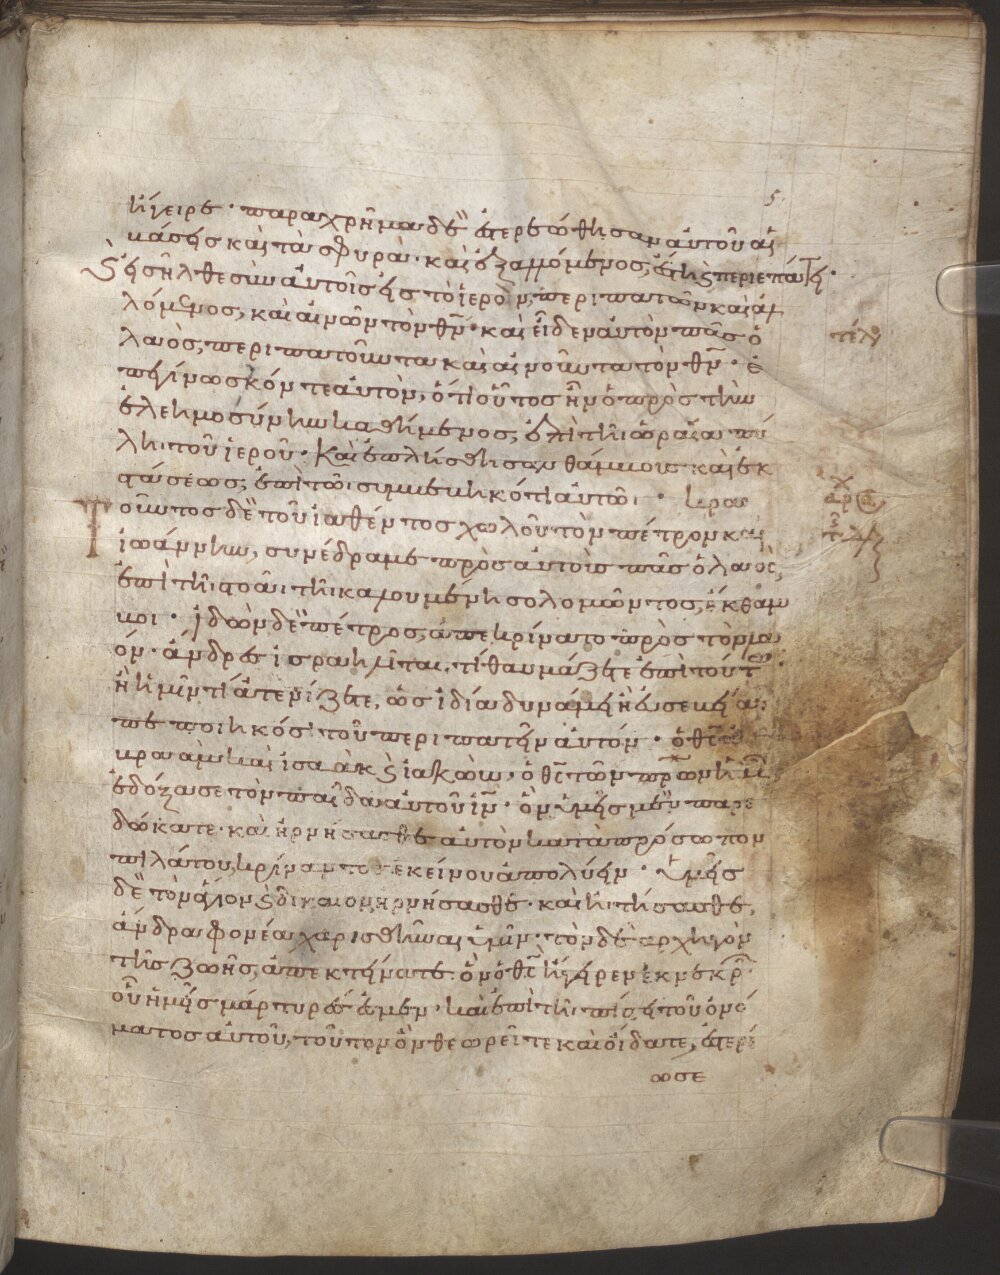 5
ἤγειρε · παραχρῆμα δὲ ἐστερεώθησαν αὐτοῦ αἱ
βάσεις καὶ τὰ σφυρά · καὶ ἐξαλλόμενος, ἔστη καὶ περιεπάτει ·
καὶ εἰσῆλθε σὺν αὐτοῖς εἰς τὸ ἱερόν, περιπατῶν καὶ ἁλ
λόμενος, καὶ αἰνῶν τὸν θν · καὶ εἶδεν αὐτὸν πᾶς ὁ
τέλ
λαὸς, περιπατοῦντα καὶ αἰνοῦντα τὸν θν · ἐ
πεγίνωσκόν τε αὐτὸν, ὅτι οὗτος ἦν ὁ πρὸς τὴν
ἐλεημοσύνην καθήμενος, ἐπὶ τῇ ὡραίᾳ πύ
λῃ τοῦ ἱεροῦ · Καὶ ἐπλήσθησαν θάμβους καὶ ἐκ
στάσεως, ἐπὶ τῶ συμβεβηκότι αὐτῶ · κρα
αρχ
τοῦντος δὲ τοῦ ἰαθέντος χωλοῦ τὸν πέτρον καὶ
ἰωάννην, συνέδραμε πρὸς αὐτοὺς πᾶς ὁ λαὸς,
ἐπὶ τῇ στοᾶ τῇ καλουμένη σολομῶντος, ἔκθαμ
βοι · ἰδὼν δὲ πέτρος, ἀπεκρίνατο πρὸς τὸν λα
όν · ἄνδρες ἰσραηλῖται, τί θαυμάζετε ἐπὶ τούτω ·
ἢ ἡμῖν τί ἀτενίζετε, ὡς ἰδία δυνάμει ἢ εὐσεβεία
πεποιηκόσι τοῦ περιπατεῖν αὐτόν · ὁ θς ἀ
βραὰμ καὶ ἰσαὰκ καὶ ἰακὼβ · ὁ θς τῶν πρων ἡμ
ἐδόξασε τὸν παῖδα αὐτοῦ ιν · ὃν ὑμεῖς μὲν παρε
δώκατε · καὶ ἠρνήσασθε αὐτὸν κατὰ πρόσωπον
πιλάτου, κρίναντος ἐκείνου ἀπολύειν · Ὑμεῖς
δὲ τὸν ἅγιον καὶ δίκαιον ἠρνήσασθε · καὶ ᾐτήσασθε,
ἄνδρα φονέα χαρισθῆναι ὑμῖν · τὸν δὲ ἀρχηγὸν
τῆς ζωῆς, ἀπεκτείνατε · ὃν ὁ θς ἤγειρεν ἐκ νεκρ ·
οὗ ἡμεῖς μάρτυρές ἐσμεν · καὶ ἐπὶ τῇ πίστει τοῦ ὀνό
ματος αὐτοῦ, τοῦτον ὃν θεωρεῖτε καὶ οἴδατε, ἐστερέ
ωσε